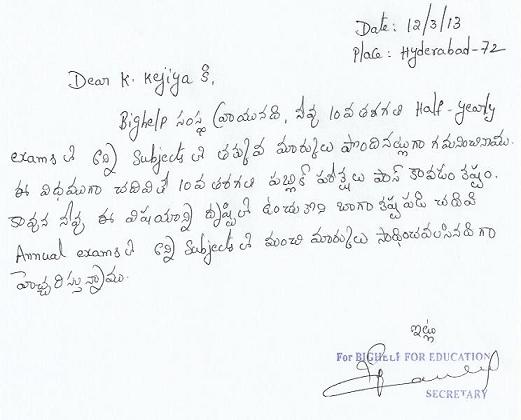 Date: 12/3/13
Place: Hyderabad-72
Dear K. Kejiya కి,
Bighelp సంస్థ వ్రాయునది, నీవు 10వ తరగతి Half-yearly
exams లో అన్ని Subjects లో తక్కువ మార్కులు పొందినట్లుగా గమనించినాము.
ఈ విధముగా చదివితే 10వ తరగతి పబ్లిక్ పరీక్షలు పాస్ కావడం కష్టం.
కావున నీవు ఈ విషయాన్ని దృష్టిలో ఉంచుకొని బాగా కష్టపడి చదివి
Annual exams లో అన్ని Subjects లో మంచి మార్కులు సాధించవలసినదిగా
హెచ్చరిస్తున్నాము.
ఇట్లు
For BIGHELP FOR EDUCATION
SECRETARY